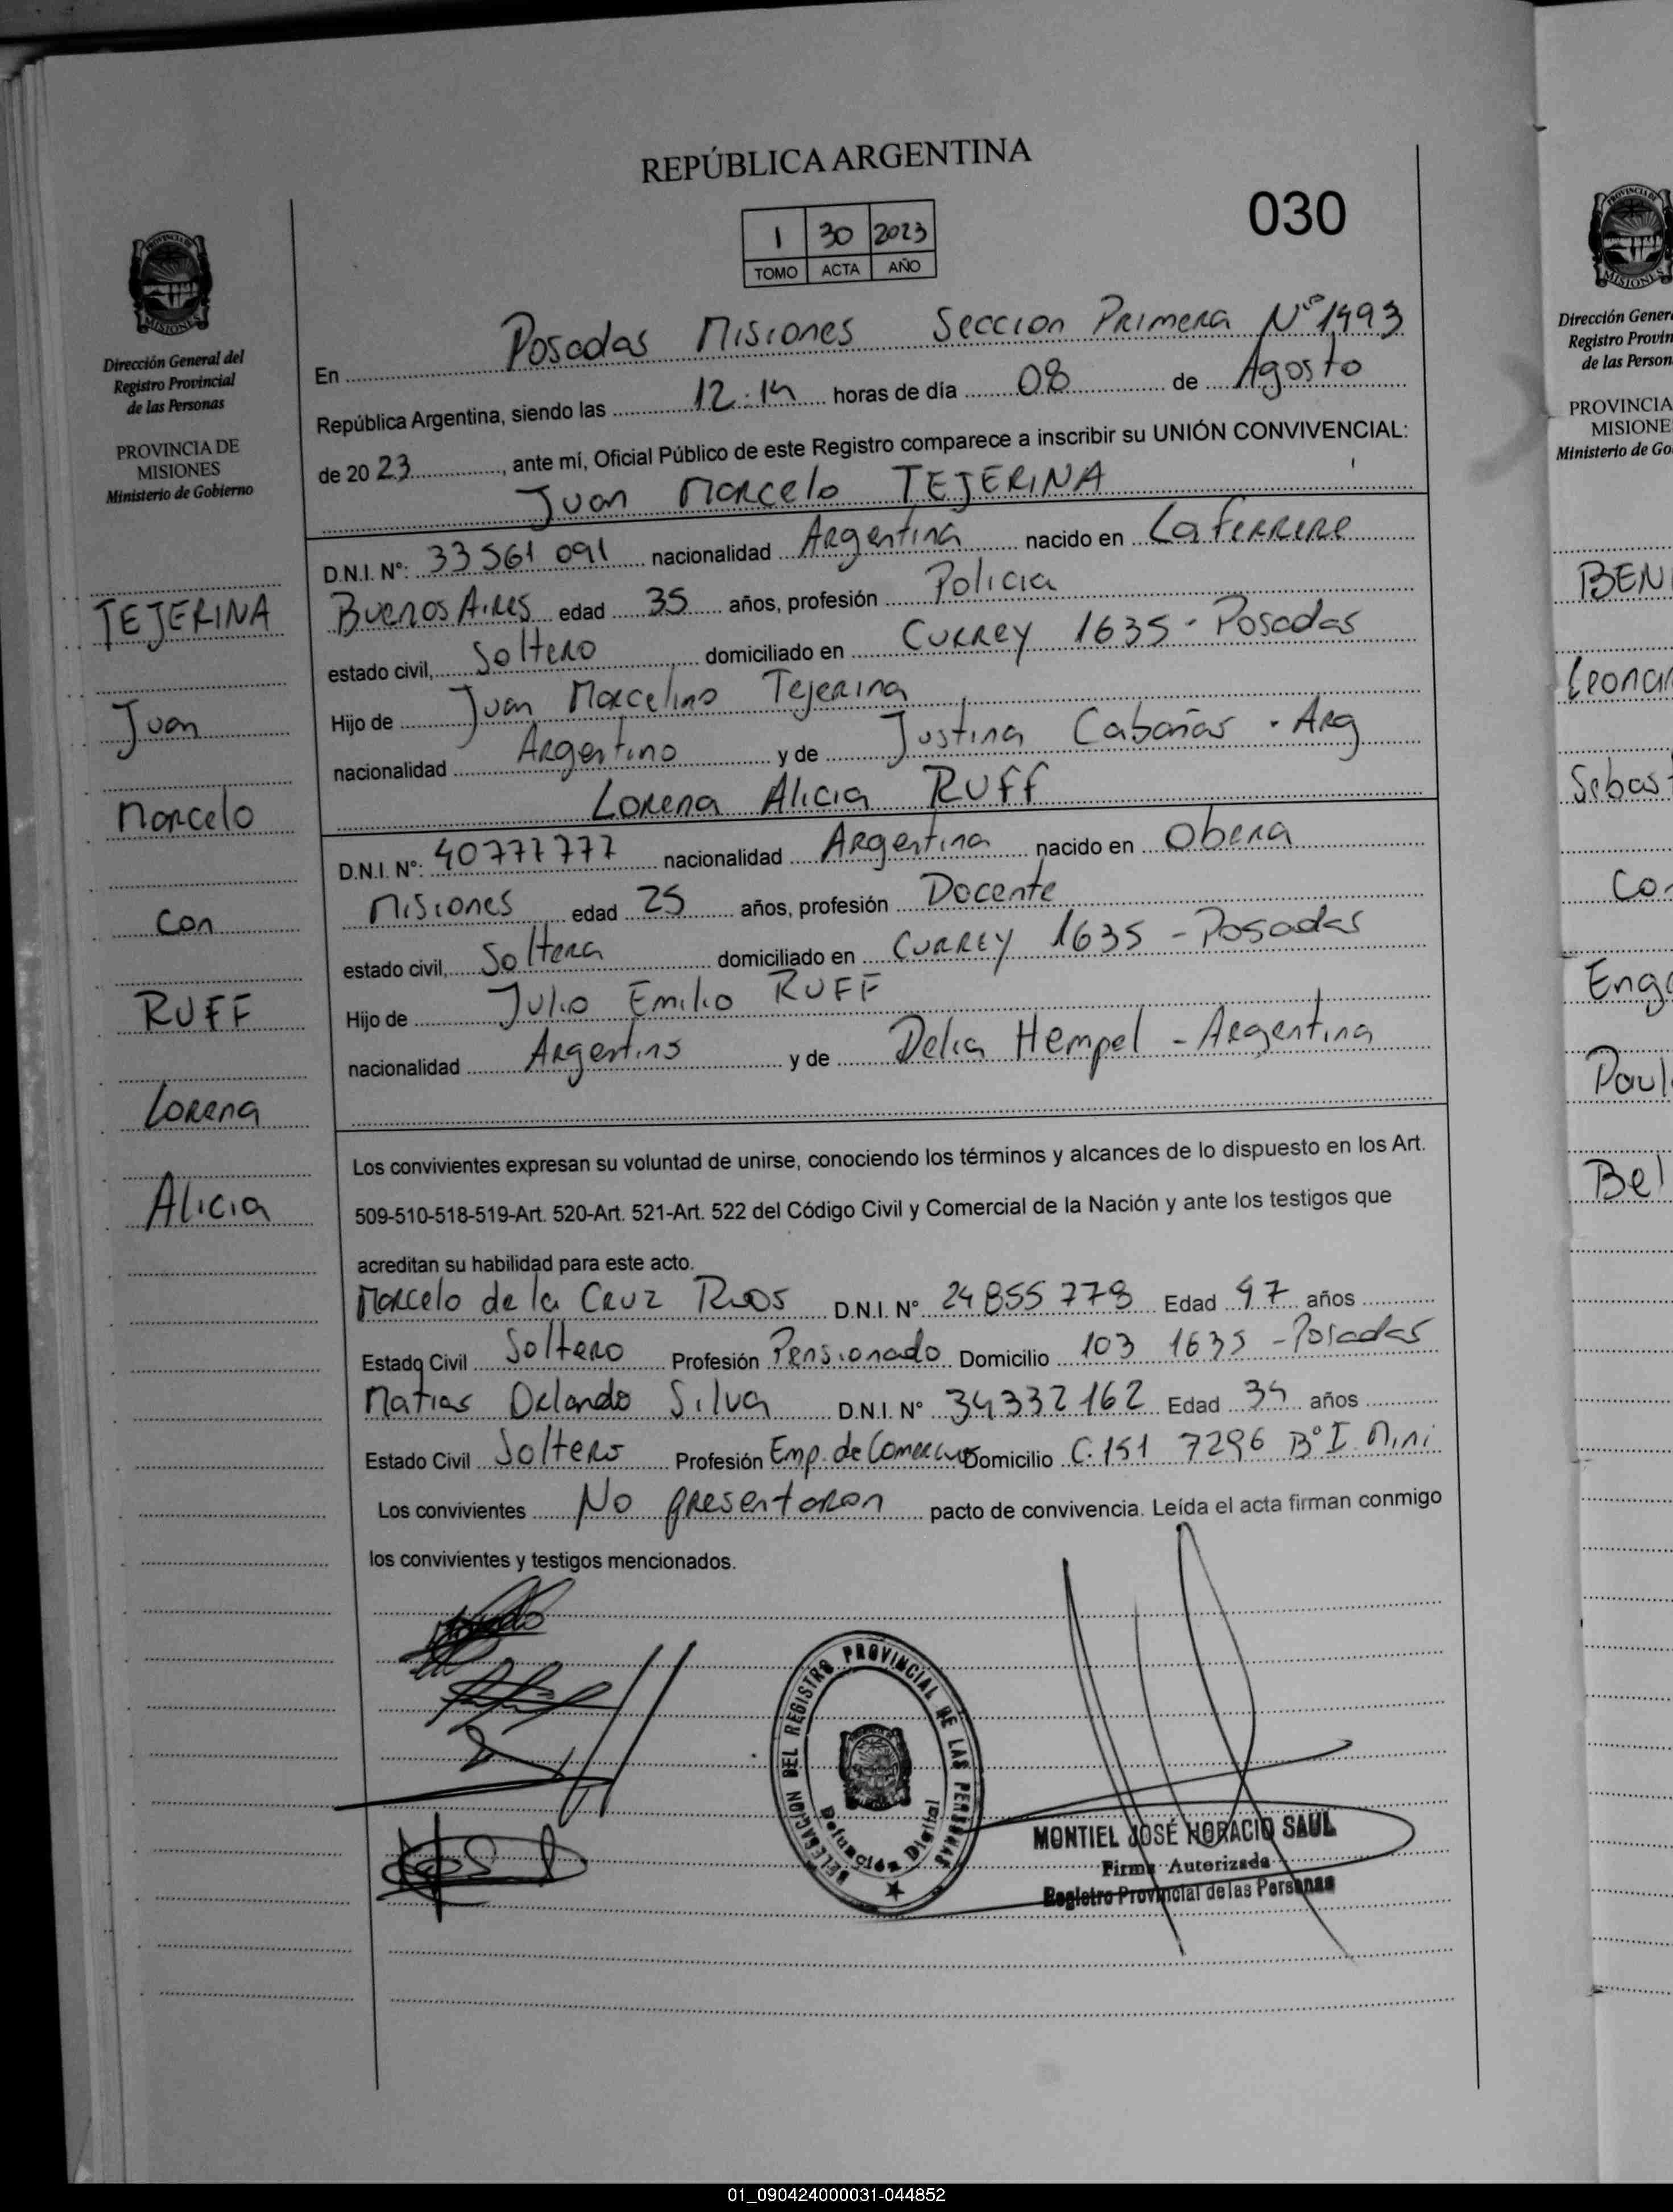 REPÚBLICA ARGENTINA
030
1 30 2023
TOMO ACTA AÑO
PROVINCIA DE MISIONES
Dirección General del
Registro Provincial
de las Personas
PROVINCIA DE
MISIONES
Ministerio de Gobierno
TEJERINA
Juan
Marcelo
Con
RUFF
Lorena
Alicia
En Posadas Misiones Seccion Primera Nº 1493
República Argentina, siendo las 12:14 horas de día 08 de Agosto
de 2023, ante mí, Oficial Público de este Registro comparece a inscribir su UNIÓN CONVIVENCIAL:
Juan Marcelo TEJERINA
D.N.I. Nº: 33561 091 nacionalidad Argentina nacido en Laferrere
Buenos Aires edad 35 años, profesión Policia
estado civil, Soltero domiciliado en Currey 1635 - Posadas
Hijo de Juan Marcelino Tejerina
nacionalidad Argentino y de Justina Cabañas - Arg
Lorena Alicia Ruff
D.N.I. Nº: 40777777 nacionalidad Argentina nacido en Obera
Misiones edad 25 años, profesión Docente
estado civil, Soltera domiciliado en Currey 1635 - Posadas
Hijo de Julio Emilio RUFF
nacionalidad Argentino y de Delia Hempel - Argentina
Los convivientes expresan su voluntad de unirse, conociendo los términos y alcances de lo dispuesto en los Art.
509-510-518-519-Art. 520-Art. 521-Art. 522 del Código Civil y Comercial de la Nación y ante los testigos que
acreditan su habilidad para este acto.
Marcelo de la Cruz Rios D.N.I. Nº 24 855 778 Edad 47 años
Estado Civil Soltero Profesión Pensionado Domicilio 103 1635 - Posadas
Matias Orlando Silva D.N.I. Nº 34332162 Edad 34 años
Estado Civil Soltero Profesión Emp. de Comercio Domicilio C. 151 7296 Bº I. Mini
Los convivientes No presentaron pacto de convivencia. Leída el acta firman conmigo
los convivientes y testigos mencionados.
DELEGACION DEL REGISTRO PROVINCIAL DE LAS PERSONAS
Defunción Digital
MONTIEL JOSÉ HORACIO SAUL
Firma Autorizada
Registro Provincial de las Personas
PROVINCIA DE MISIONES
Dirección Gener
Registro Provin
de las Person
PROVINCIA
MISIONE
Ministerio de Go
BEN
Leonar
Sebas
Co
Eng
Paul
Bel
01_090424000031-044852